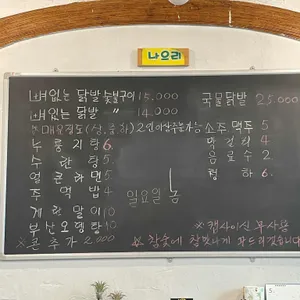 나으리
뼈없는 닭발 숯불구이 15.000
뼈없는 닭발 〃 14.000
※ 매운정도(상,중,하) 2인이상주문가능
누룽지탕 6.
수란탕 5.
얼큰라면 5
주먹밥 4
계란말이 10
부산오뎅탕 10
※콘추가 2.000
일요일 놈
국물닭발 25.000
소주 맥주 5
막걸리 4
음료수 2.
청하 6.
※캡사이신 무사용